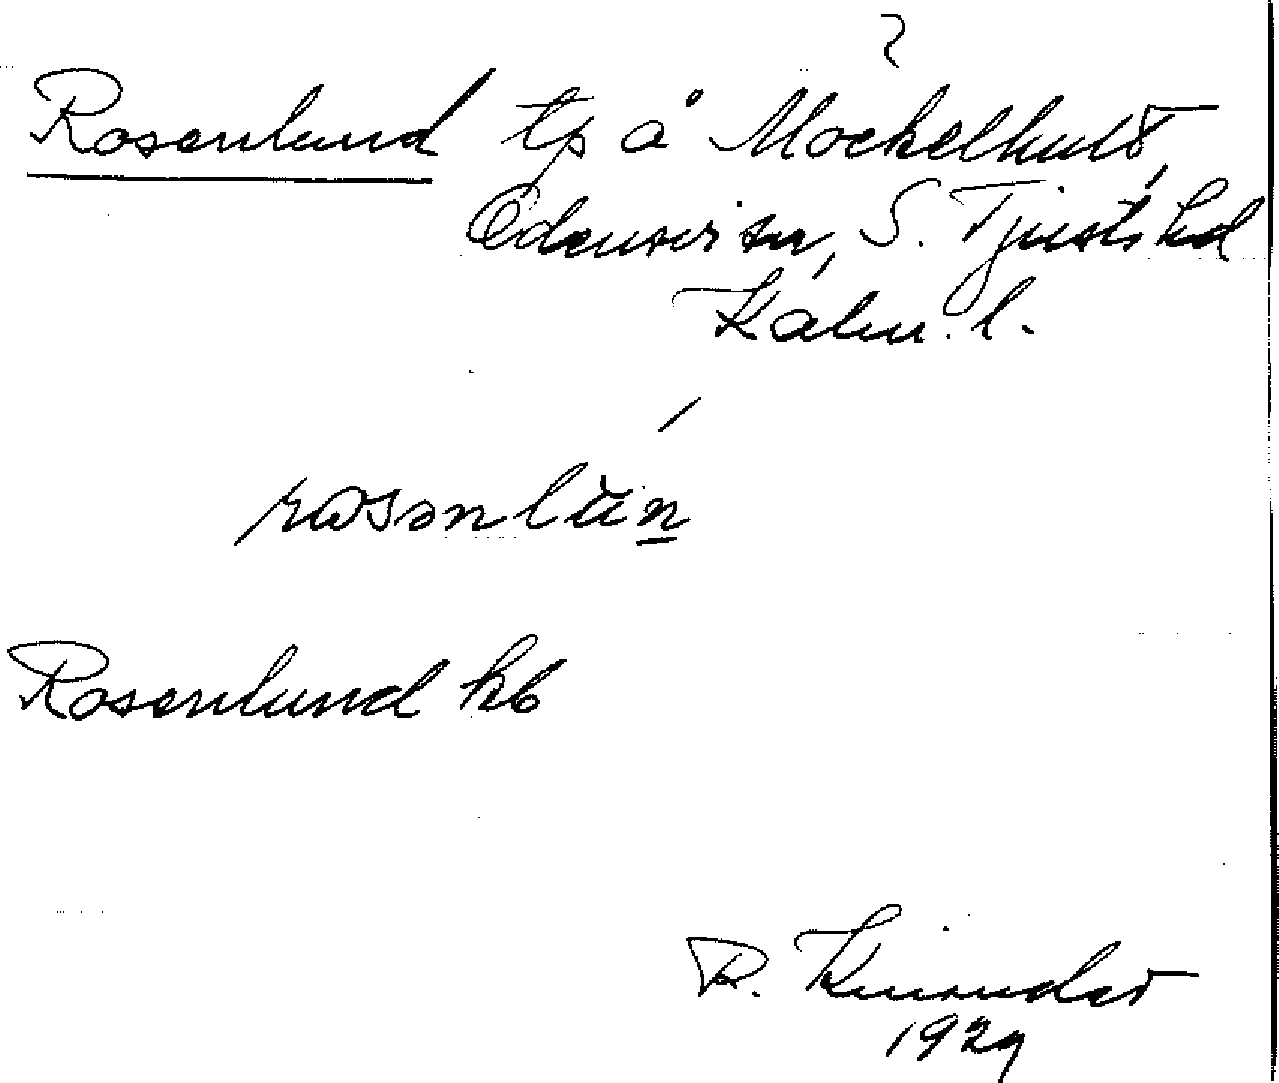 ?
Rosenlund tp å Mockelhult,
Odensvi sn, S. Tjusts hd
Kalm. l.
rosənlun
Rosenlund kb
R. 
1929